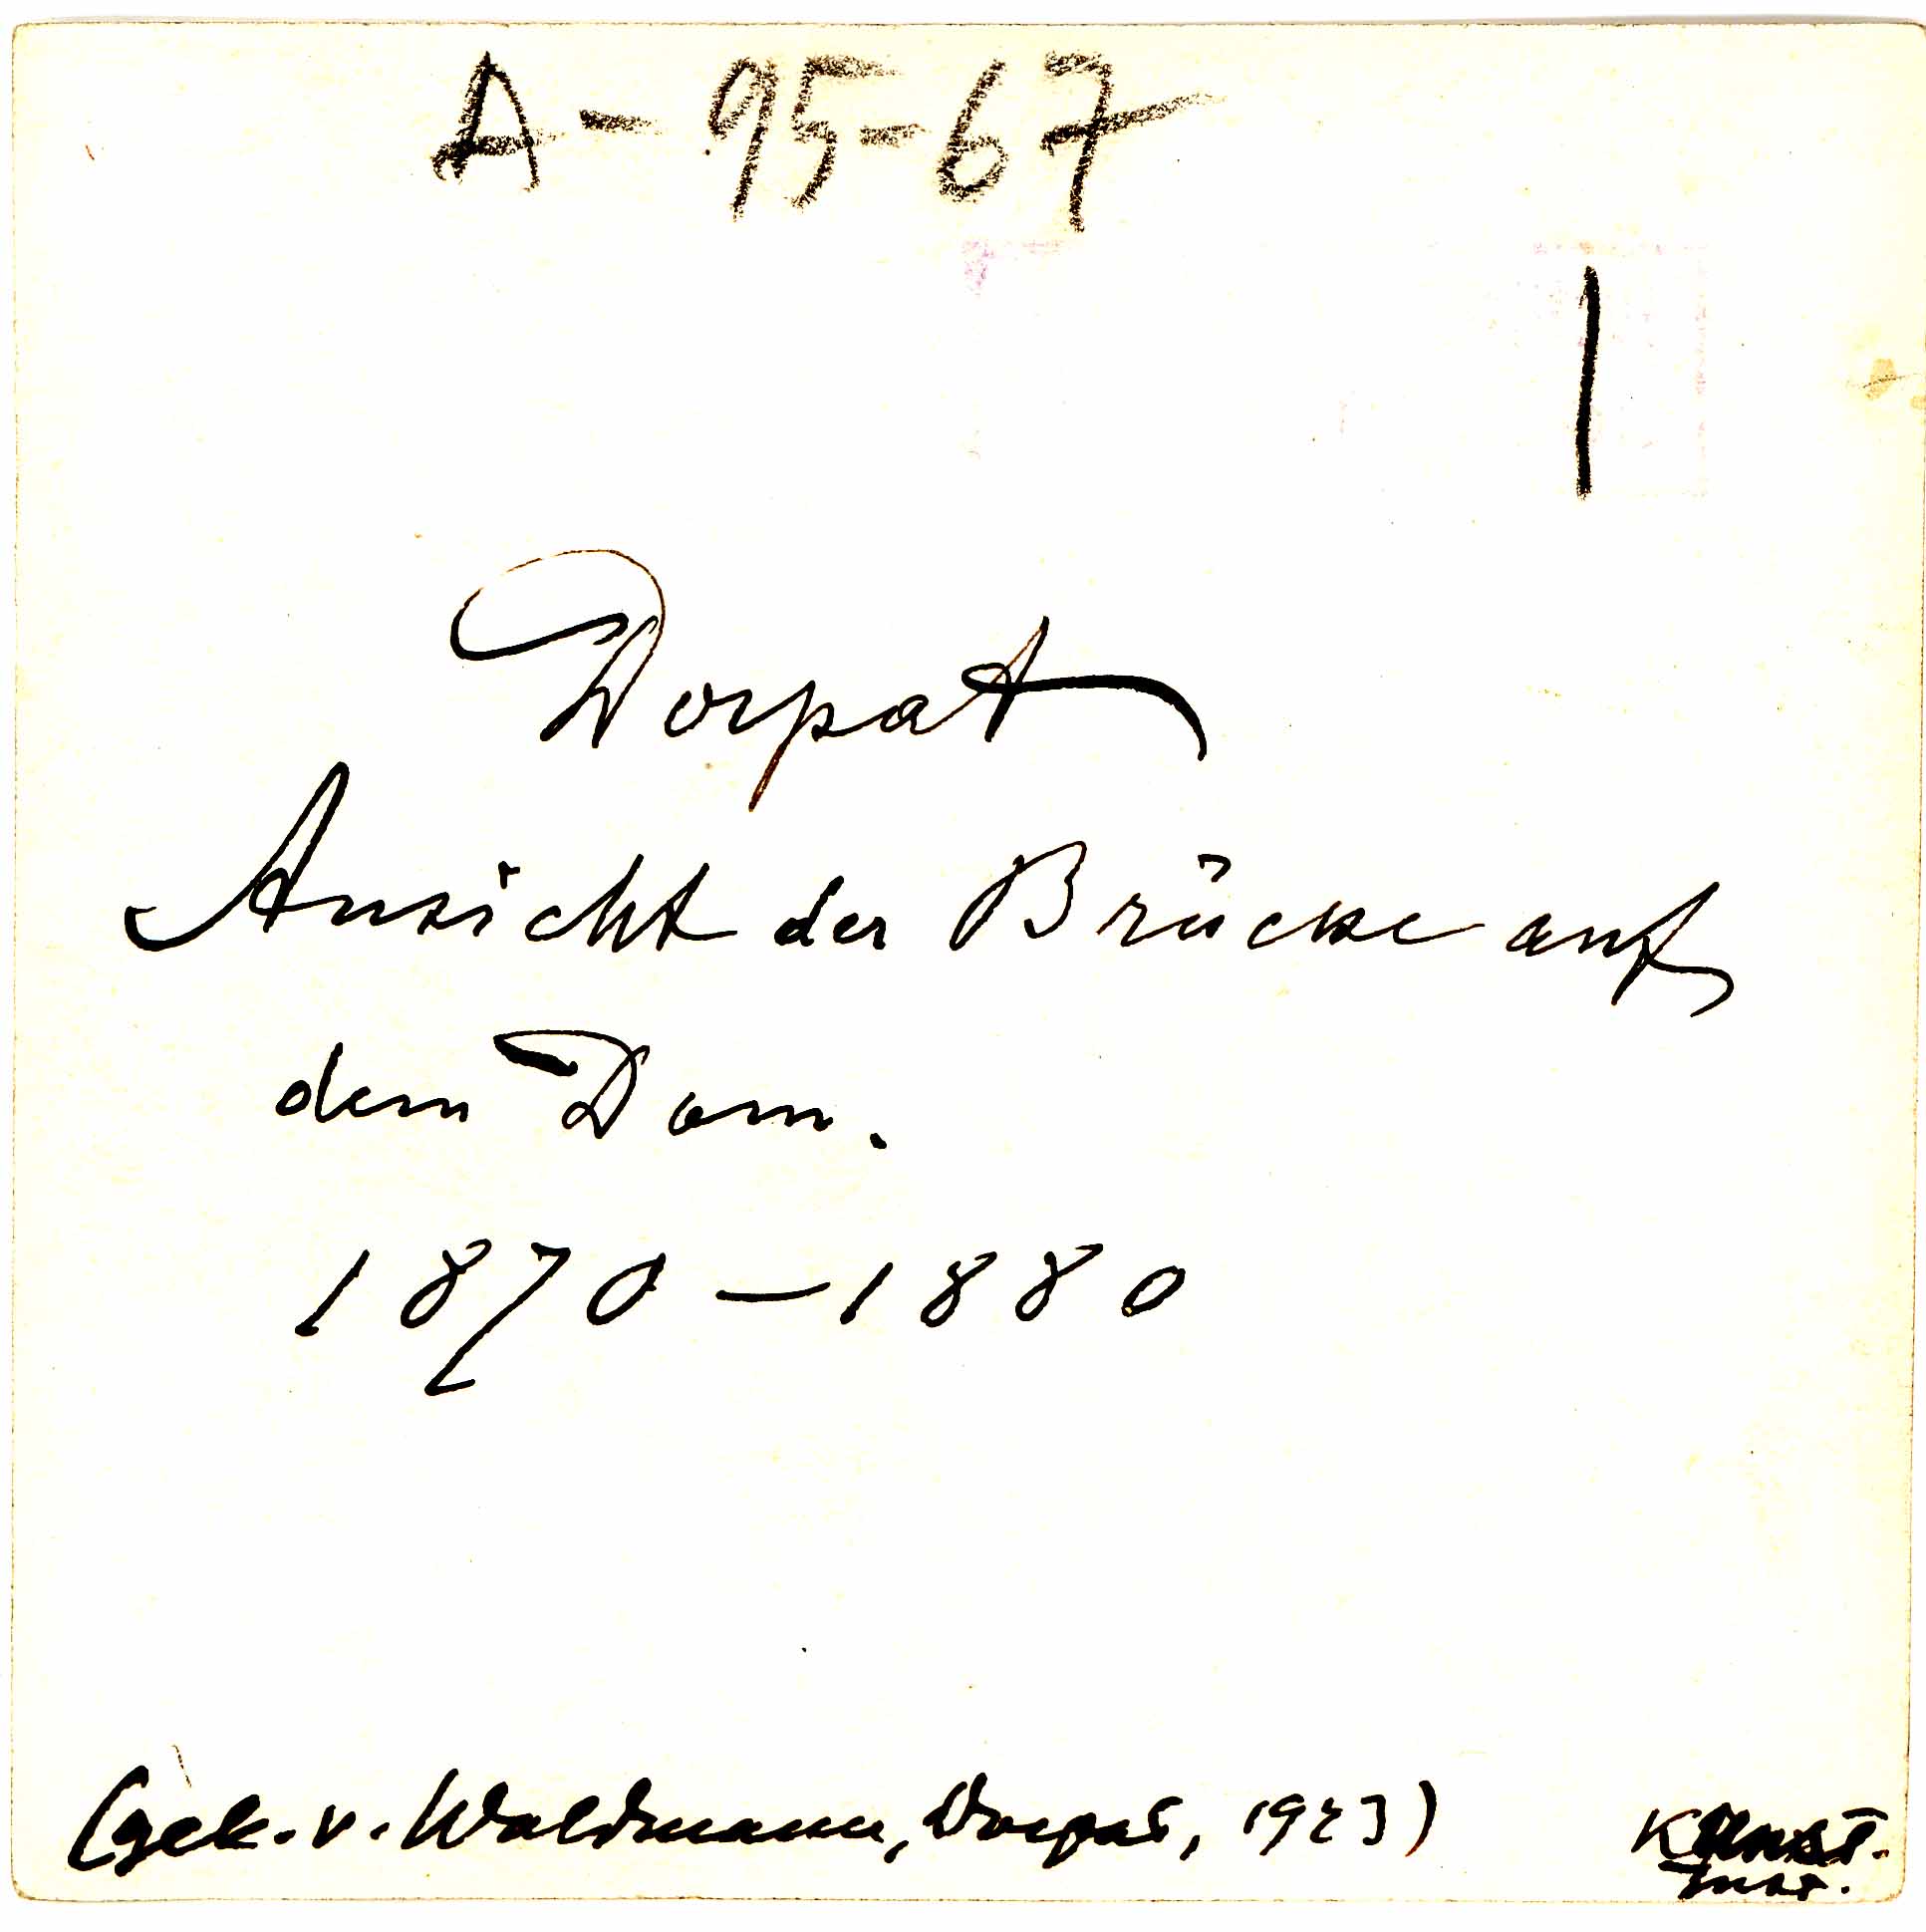 A-95-67
1
Dorpat
Ansicht der Brücke auf
dem Dom.
1870-1880
(gek. v. Waldmann, Dorpat, 1923)
Kunst.
Inst.